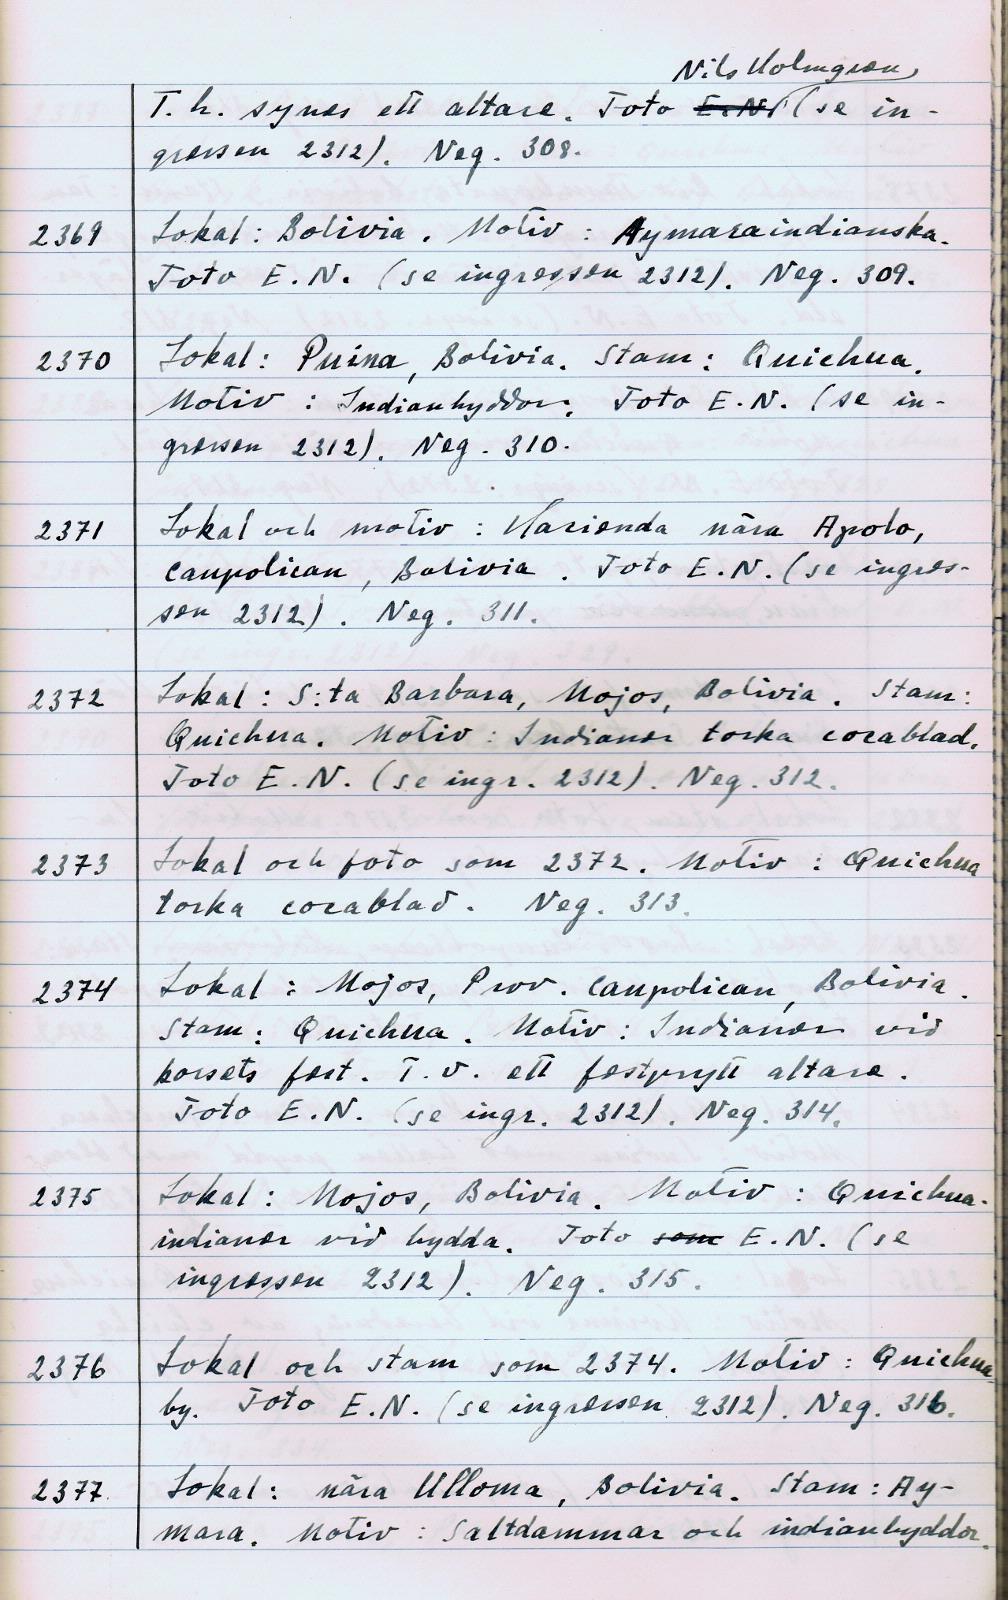 Nils Holmgren,
T. h. synes ett altare. Foto E.N. (se in-
gressen 2312). Neg. 308.
2369 Lokal: Bolivia. Motiv: Aymaraindianska.
Foto E.N. (se ingressen 2312). Neg. 309.
2370 Lokal: Puina, Bolivia. Stam: Quichua.
Motiv: Indianhyddor. Foto E.N. (se in-
gressen 2312). Neg. 310.
2371 Lokal och motiv: Hacienda nära Apolo,
Caupolican, Bolivia. Foto E.N. (se ingres-
sen 2312). Neg. 311.
2372 Lokal: S:ta Barbara, Mojos, Bolivia. Stam:
Quichua. Motiv: Indianer torka cocablad.
Foto E.N. (se ingr. 2312). Neg. 312.
2373 Lokal och foto som 2372. Motiv: Quichua
torka cocablad. Neg. 313.
2374 Lokal: Mojos, Prov. Caupolican, Bolivia.
Stam: Quichua. Motiv: Indianer vid
korsets fest. T.v. ett festprytt altare.
Foto E.N. (se ingr. 2312). Neg. 314.
2375 Lokal: Mojos, Bolivia. Motiv: Quichua-
indianer vid hydda. Foto som E.N. (se
ingressen 2312). Neg. 315.
2376 Lokal och stam som 2374. Motiv: Quichua-
by. Foto E.N. (se ingressen 2312). Neg. 316.
2377 Lokal: nära Ulloma, Bolivia. Stam: Ay-
mara. Motiv: Saltdammar och indianhyddor.